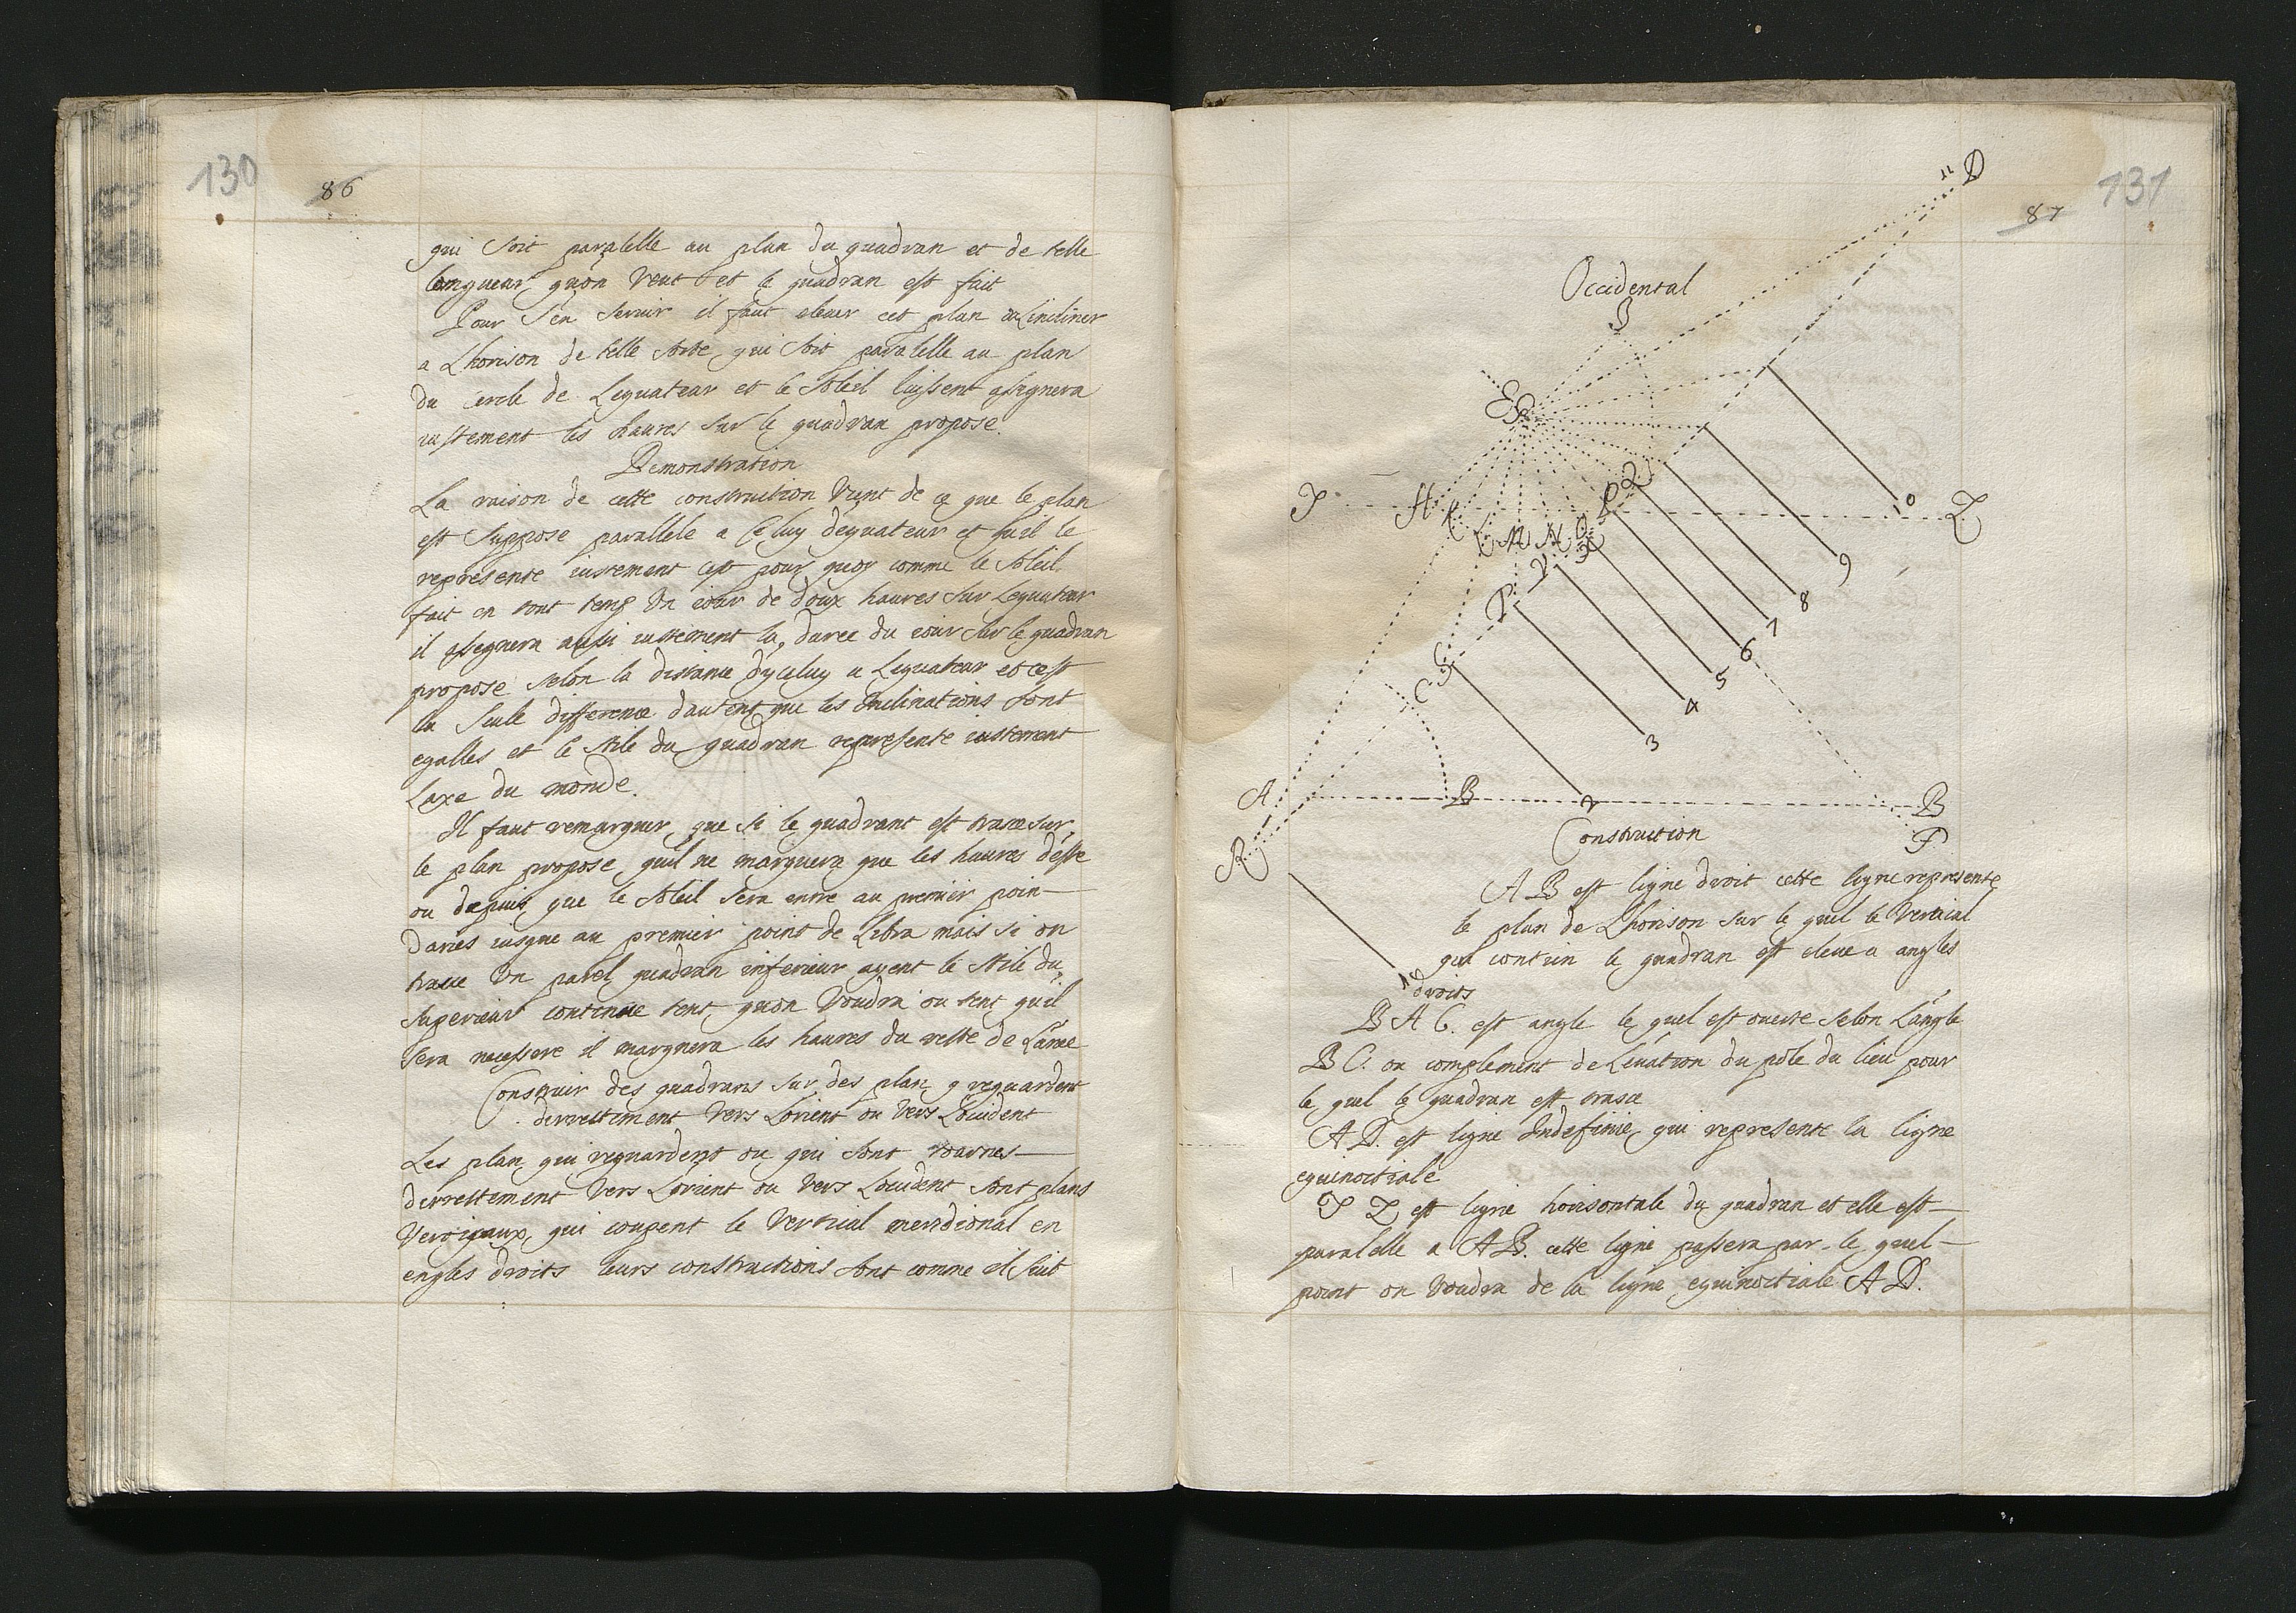 130
86
qui soit paralelle au plan du quadran et de telle
longueur quon veut et le quadran est fait
Pour sen servir il faut elever cet plan ou incliner
a Lhorison de telle sorte qui soit paralelle au plan
du cercle de Lequateur et le soleil luissent assignera
iustement les haures sur le quadran propose
Demonstration
La raison de cette construction vient de ce que le plan
est suppose parallele a celuy dequateur et quil le
represente iustement cest pour quoy comme le soleil
fait en tout temps un cour de doux haures sur Lequateur
il assegnera aussi iustement la duree du iour sur le quadran
propose selon la distance dyceluy a Lequateur et cest
la seule difference dautent que les inclinations sont
egalles et le stile du quadran represente iustement
Laxe du monde.
Il faut remarquer que si le quadrant est trase sur
le plan propose quil ne marquera que les haures deste
ou depuis que le soleil sera entre au premier poin
daries iusque au premier point de Libra mais si on
trase un parel quadran inferieur ayent le stile du
superieur continue tent quon voudra ou tent quil
sera necessere il marquera les haures du reste de Lanee
Construir des quadrans sur des plan q reguardent
dirrettement vers Lorient ou vers Locident
Les plan qui reguardent ou qui sont tournes
dirrettement vers Lorient ou vers Locident sont plans
Verticaux qui coupent le Vertical meridional en
engles droits leurs constructions sont comme il suit
131
87
11 D
Occidental
S
E
I H K L M N O P Q 10 Z
X
V
P
G
C
9
8
7
6
5
4
3
A B 2 B
F
R
1
Construction
A B est ligne droit cette ligne represente
le plan de Lhorison sur le quel le Vertical
qui contien le quadran est eleve a angles
droits
B A C. est angle le quel est ouerte selon Langle
B C. ou complement de Levation du pole du lieu pour
le quel le quadran est trase
A D. est ligne Indefinie qui represente la ligne
equinoctiale
I Z est ligne horisontale du quadran et elle est
paralelle a A B. cette ligne passera par le quel
point on voudra de la ligne equinoctiale A D.